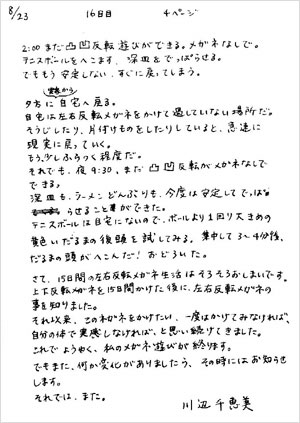 8/23　16日目　4ページ
2:00 まだ凸凹反転遊びができる。メガネなしで。
テニスボールをへこます、深皿をでっぱらせる。
でももう安定しない、すぐに戻ってしまう。
から
夕方に自宅へ戻る。
自宅は左右反転メガネをかけて過していない場所だ。
そうじしたり、片付けものをしたりしていると、急速に
現実に戻っていく。
もう、少しふらつく程度だ。
それでも、夜9:30、まだ凸凹反転がメガネなしで
できる。
深皿も、ラーメンどんぶりも、今度は安定してでっぱ
らせることができた。
テニスボールは自宅にないので、ボールより1回り大きめの
黄色いだるまの後頭を試してみる。集中して3〜4分後、
だるまの頭がへこんだ!おどろいた。
さて、15日間の左右反転メガネ生活はそろそろおしまいです。
上下反転メガネを15日間かけた後に、左右反転メガネの
事を知りました。
それ以来、このメガネをかけたい、一度はかけてみなければ、
自分の体で実感しなければ、と思い続けてきました。
これでようやく、私のメガネ遊びが終ります。
でもまた、何か変化がありましたら、その時にはお知らせ
します。
それでは、また。
川辺千恵美